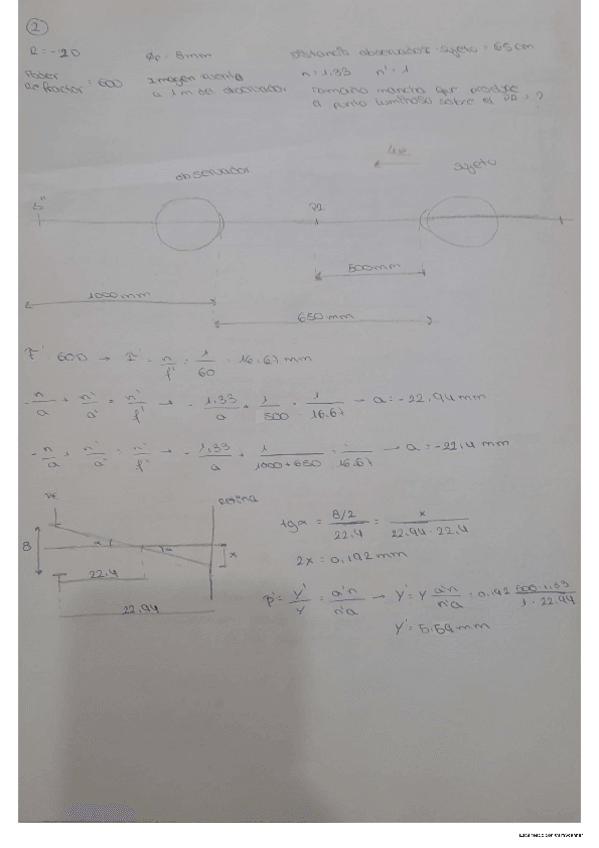 2
R = -2D
φp = 8mm
Distancia observador-sujeto = 65cm
Poder Refractor = 60D
Imagen
a 1m del observador
n = 1.33 n' = 1
Tamaño mancha que produce
el punto luminoso sobre el PR = ?
observador
sujeto
PR
500mm
1000mm
650mm
60D → = n/f' = 1/60 = 16.67 mm
-n/a + n'/a' = n'/f' → -1.33/a + 1/500 = 1/16.67 → a = -22.94 mm
-n/a + n'/a' = n'/f' → -1.33/a + 1/(1000+650) = 1/16.67 → a = -22.4 mm
retina
8
α
α
x
22.4
22.94
tgα = (8/2)/22.4 = x/(22.94-22.4)
2x = 0.192 mm
β' = y'/y = a'n/n'a → y' = y a'n/n'a = 0.192 (500·1.33)/(1·22.94)
y' = 5.59 mm